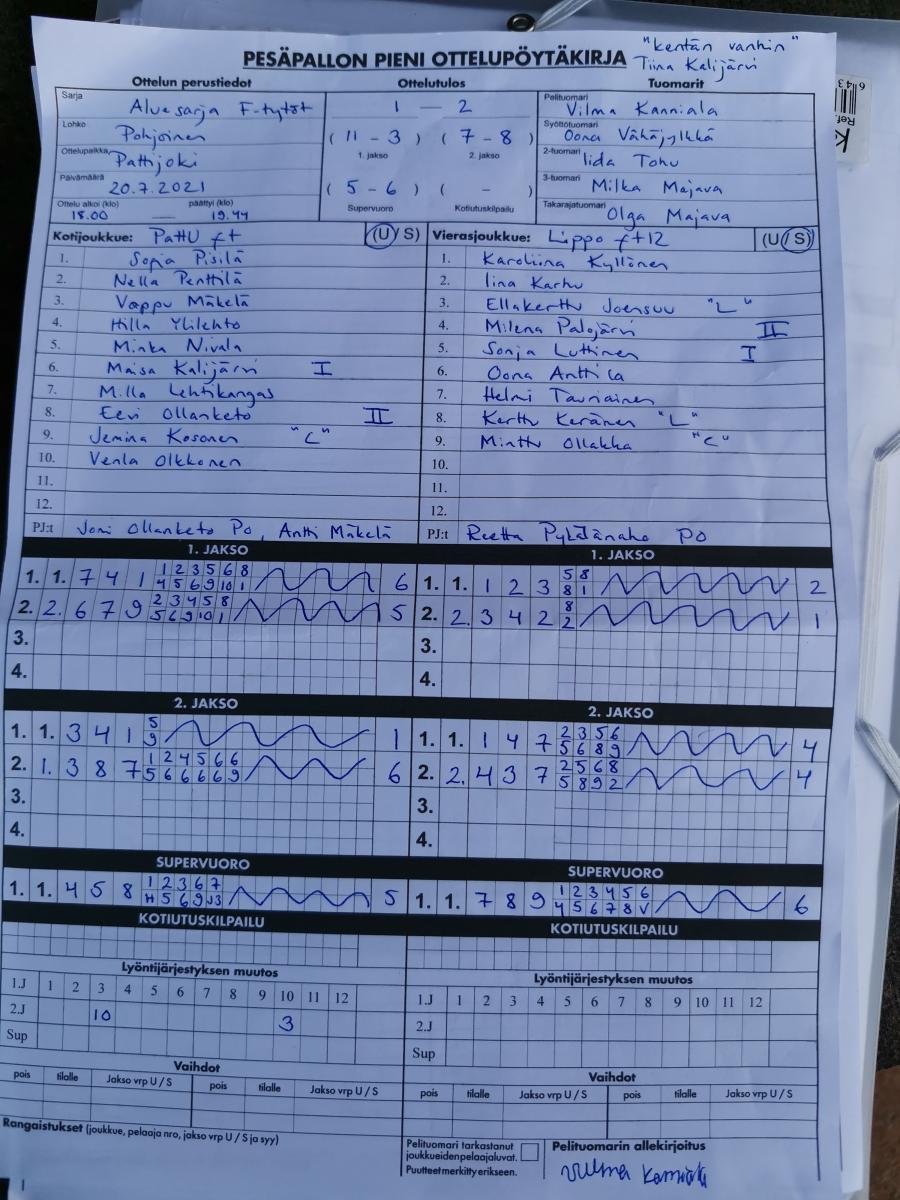 "kentän vanhin"
PESÄPALLON PIENI OTTELUPÖYTÄKIRJA Tiina Kalijärvi
Ottelun perustiedot Ottelutulos Tuomarit
Sarja Aluesarja F-tytöt 1 — 2 Pelituomari Vilma Kanniala
Lohko Pohjoinen ( 11 - 3 ) ( 7 - 8 ) Syöttötuomari Oona Vähäjylkkä
1. jakso 2. jakso
Ottelupaikka Pattijoki 2-tuomari Iida Tohu
Päivämäärä 20.7.2021 ( 5 - 6 ) ( - ) 3-tuomari Milka Majava
Ottelu alkoi (klo) päättyi (klo) Supervuoro Kotiutuskilpailu Takarajatuomari Olga Majava
18.00 — 19.44
Kotijoukkue: PattU f+ (U/ S) Vierasjoukkue: Lippo f+12 (U/ S)
1. Sonja Pisilä 1. Karoliina Kyllönen
2. Nella Penttilä 2. Iina Karhu
3. Vappu Mäkelä 3. Ellakerttu Joensuu "L"
4. Hilla Ylilehto 4. Milena Palojärvi II
5. Minka Nivala 5. Sonja Luttinen I
6. Maisa Kalijärvi I 6. Oona Anttila
7. Milla Lehtikangas 7. Helmi Tauriainen
8. Eevi Ollanketo II 8. Kerttu Keränen "L"
9. Jemina Kosonen "C" 9. Minttu Ollakka "C"
10. Venla Olkkonen 10.
11. 11.
12. 12.
PJ:t Joni Ollanketo PO, Antti Mäkelä PJ:t Reetta Pykälänaho PO
1. JAKSO 1. JAKSO
1. 1. 7 4 1 1 2 3 5 6 8 6 1. 1. 1 2 3 5 8 2
4 5 6 9 10 1 8 1
2. 2. 6 7 9 2 3 4 5 8 5 2. 2. 3 4 2 8 1
5 6 9 10 1 2
3. 3.
4. 4.
2. JAKSO 2. JAKSO
1. 1. 3 4 1 5 1 1. 1. 1 4 7 2 3 5 6 4
9 5 6 8 9
2. 1. 3 8 7 1 2 4 5 6 6 6 2. 2. 4 3 7 2 5 6 8 4
5 6 6 6 6 9 5 8 9 2
3. 3.
4. 4.
SUPERVUORO SUPERVUORO
1. 1. 4 5 8 1 2 3 6 7 5 1. 1. 7 8 9 1 2 3 4 5 6 6
H 5 6 9 J3 4 5 6 7 8 V
KOTIUTUSKILPAILU KOTIUTUSKILPAILU
Lyöntijärjestyksen muutos Lyöntijärjestyksen muutos
1.J 1 2 3 4 5 6 7 8 9 10 11 12 1.J 1 2 3 4 5 6 7 8 9 10 11 12
2.J 10 3 2.J
Sup Sup
Vaihdot Vaihdot
pois tilalle Jakso vrp U / S pois tilalle Jakso vrp U / S pois tilalle Jakso vrp U / S pois tilalle Jakso vrp U / S
Rangaistukset (joukkue, pelaaja nro, jakso vrp U / S ja syy)
Pelituomari tarkastanut Pelituomarin allekirjoitus
joukkueiden pelaajaluvat.
Puutteet merkitty erikseen. Vilma Kanniala